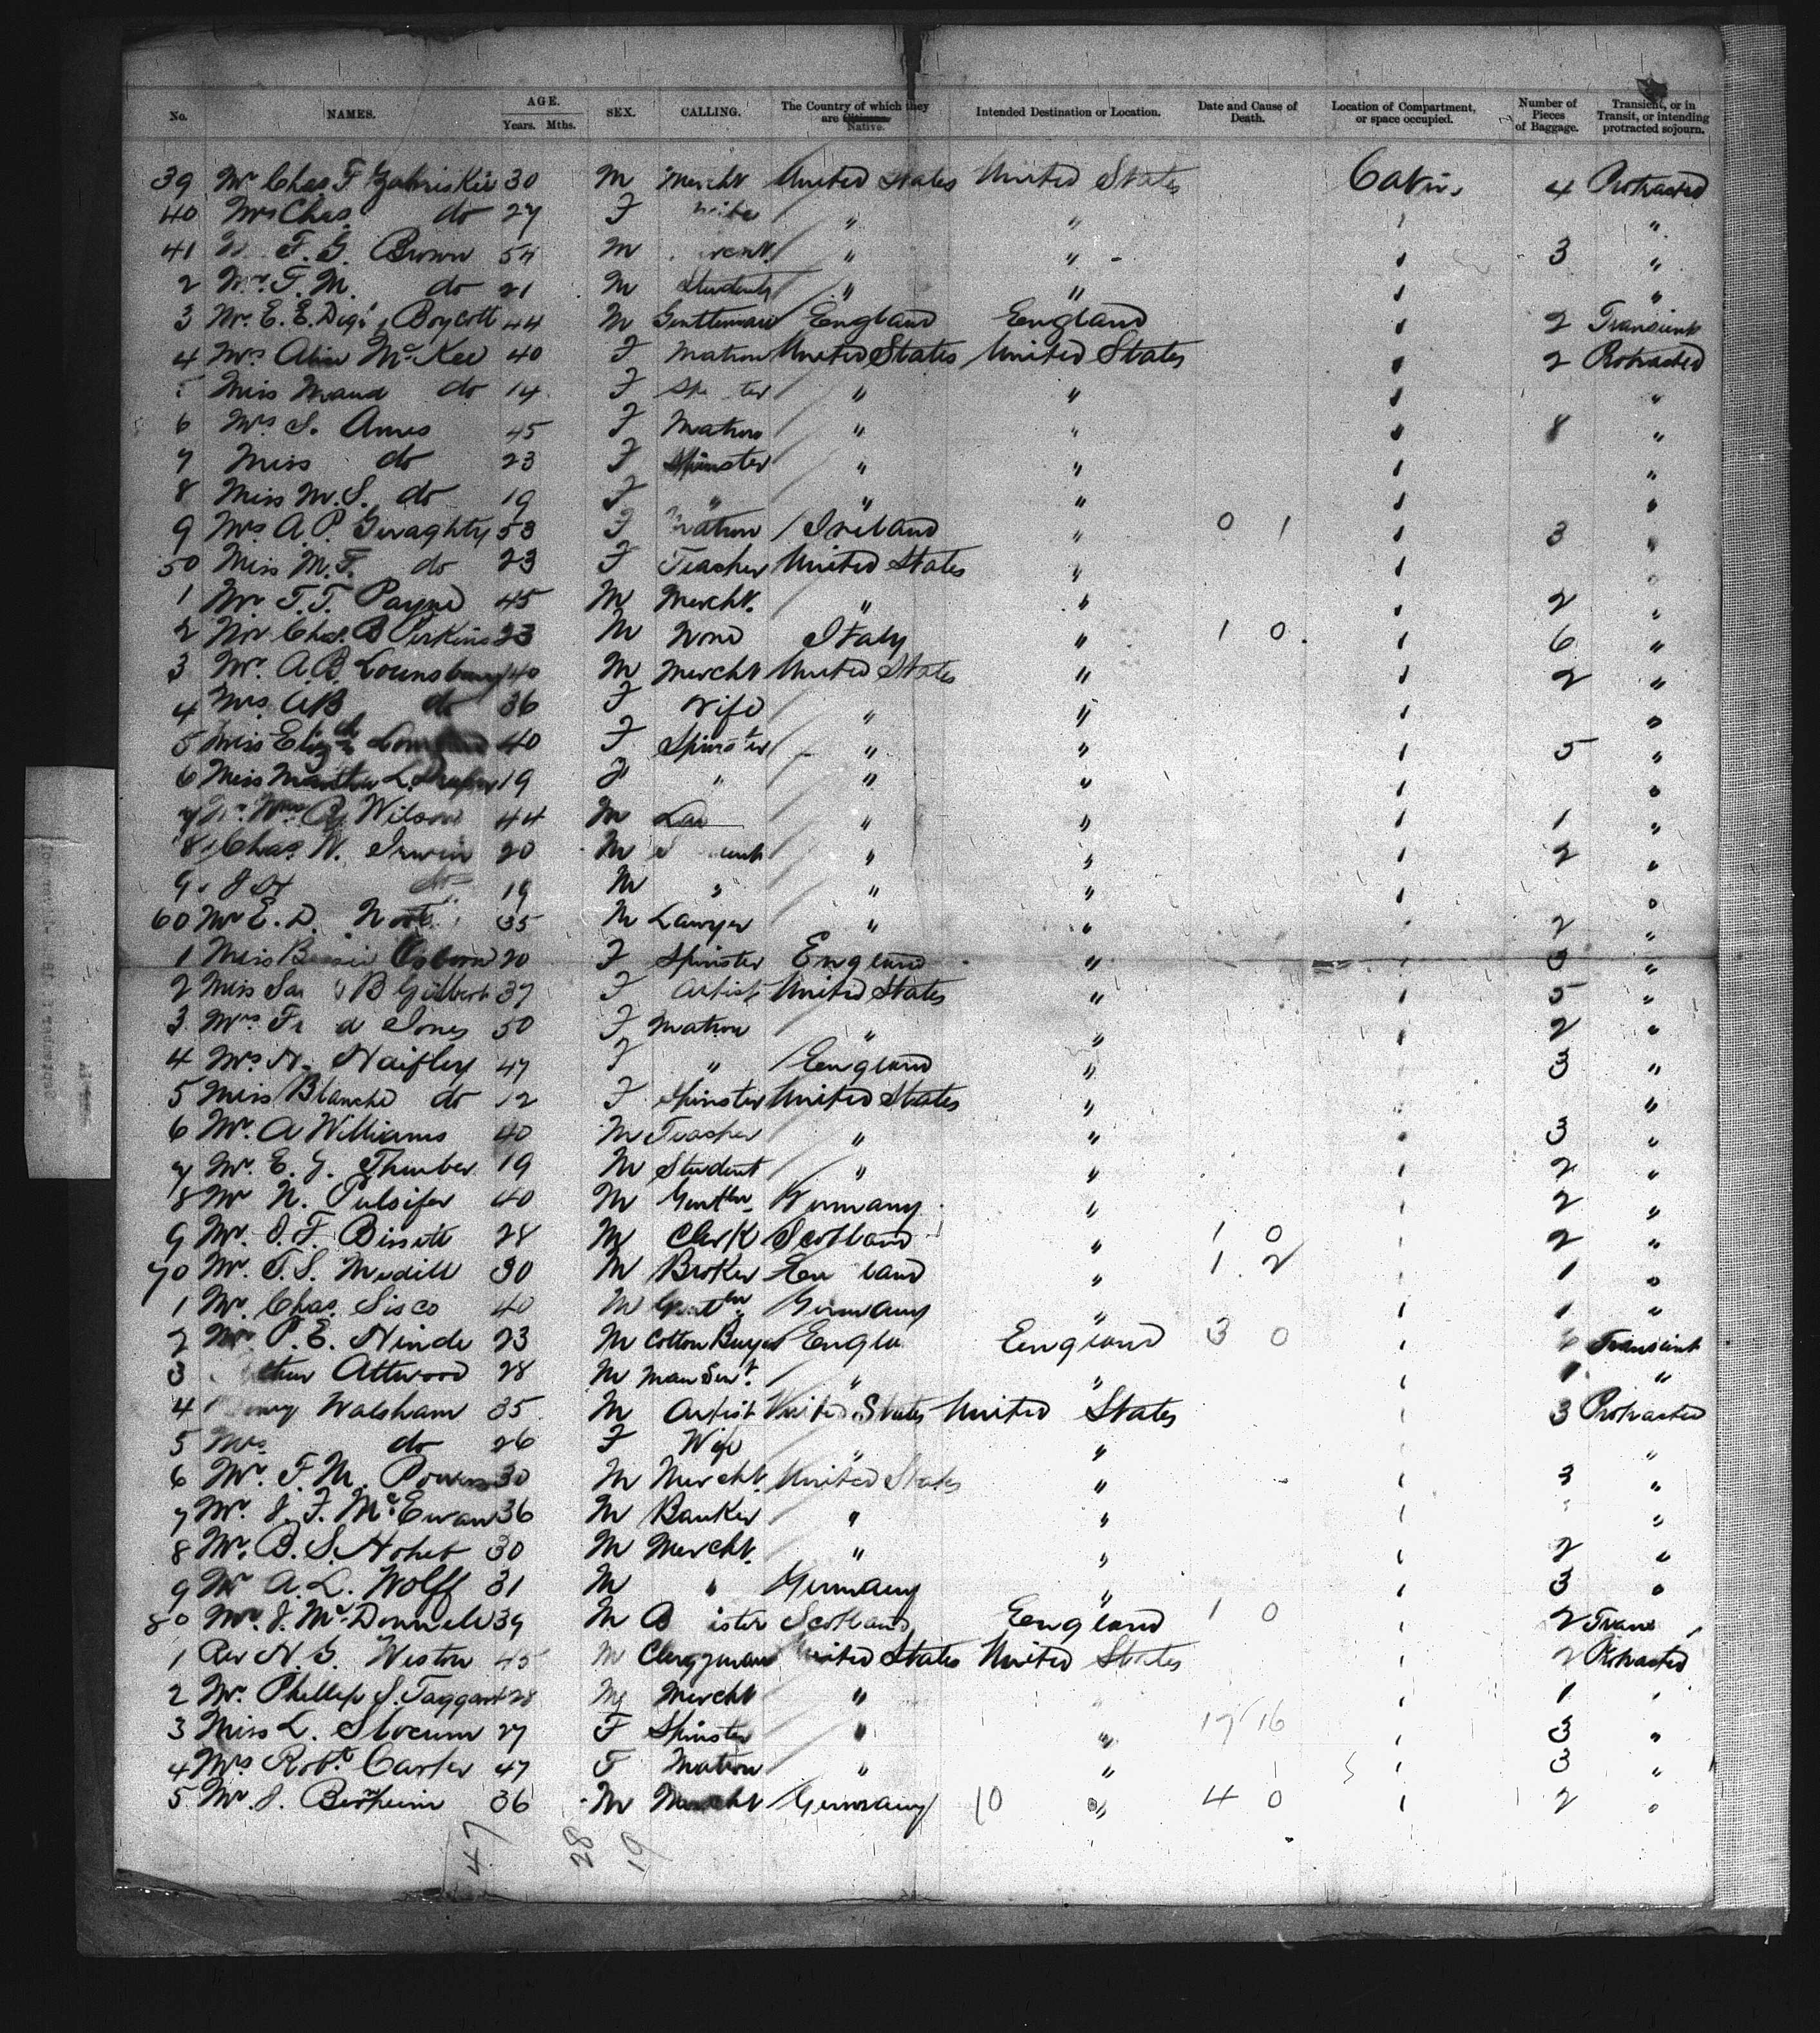 No. NAMES. AGE. Years. Mths. SEX. CALLING. The Country of which they are Citizens Native. Intended Destination or Location. Date and Cause of Death. Location of Compartment, or space occupied. Number of Pieces of Baggage. Transient, or in Transit, or intending protracted sojourn.
39 Mr Chas F Zabriskie 30 M Mercht United States United States Cabin 4 Protracted
40 Mrs Chas do 27 F Wife " " " "
41 F. G. Brown 54 M " " " 3 "
2 Mr. F. M. do 21 M Student " " " "
3 Mr. E. E. Digs Boycott 44 M Gentleman England England " 2 Transient
4 Mrs Alice McKee 40 F Matron United States United States " 2 Protracted
5 Miss Maud do 14 F " " " "
6 Mrs S. Ames 45 F Matron " " " 8 "
7 Miss do 23 F Spinster " " " "
8 Miss M. S. do 19 F " " " " "
9 Mrs A. P. Geraghty 53 F Matron Ireland " 0 1 " 3 "
50 Miss M. F. do 23 F Teacher United States " " "
1 Mr T. T. Payne 45 M Mercht. " " " 2 "
2 Mr Chas. B Perkins 23 M None Italy " 1 0 " 6 "
3 Mr. A. B. Lounsbury 40 M Mercht United States " " 2 "
4 Mrs AB do 36 F Wife " " " "
5 Miss Elizth 40 F Spinster " " " 5 "
6 Miss Martha L. 19 F " " " " "
7 Wm Wilson 44 M " " " 1 "
8 Chas. W. Irwin 20 M " " " 2 "
9 J H do 19 M " " " " "
60 Mr E. D. 35 M Lawyer " " " 2 "
1 Miss Osborn 20 F Spinster England " " 3 "
2 Miss B Gilbert 37 F Artist United States " " 5 "
3 Mrs Jones 50 F Matron " " " 2 "
4 Mrs H. Haifley 47 F " England " " 3 "
5 Miss Blanche do 12 F Spinster United States " " "
6 Mr. A Williams 40 M Teacher " " " 3 "
7 Mr. E. G. Thurber 19 M Student " " " 2 "
8 Mr N. Pulsifer 40 M Gentln Germany " " 2 "
9 Mr. J. F. Bissett 28 M Clerk Scotland " 1 0 " 2 "
70 Mr. T. S. Medill 30 M Broker En land " 1 2 " 1 "
1 Mr. Chas. Sisco 40 M Gentln Germany " " 1 "
2 Mr P. E. Hinde 23 M Cotton Buyer Engla England 3 0 " Transient
3 Attwood 28 M Man Servt. " " " 1 "
4 Walsham 35 M Artist United States United States " 3 Protracted
5 Mrs do 26 F Wife " " " "
6 Mr. F. M. Powers 30 M Mercht. United States " " 3 "
7 Mr. J. F. McEwan 36 M Banker " " " "
8 Mr. B. S. 30 M Mercht. " " " 2 "
9 Mr A. L. Wolff 31 M " Germany " " 3 "
80 Mr. J. McDonnell 39 M B ister Scotland England 1 0 " 2 Trans
1 Rev H. G. Weston 45 M Clergyman United States United States " 2 Protracted
2 Mr. Phillip S. Taggart 28 M Mercht " " " 1 "
3 Miss L. Slocum 27 F Spinster " " 17 16 " 3 "
4 Mrs Robt Carter 47 F Matron " " " 3 "
5 Mr. J. Bernheim 36 M Mercht Germany 10 " 4 0 " 2 "
47 28 19